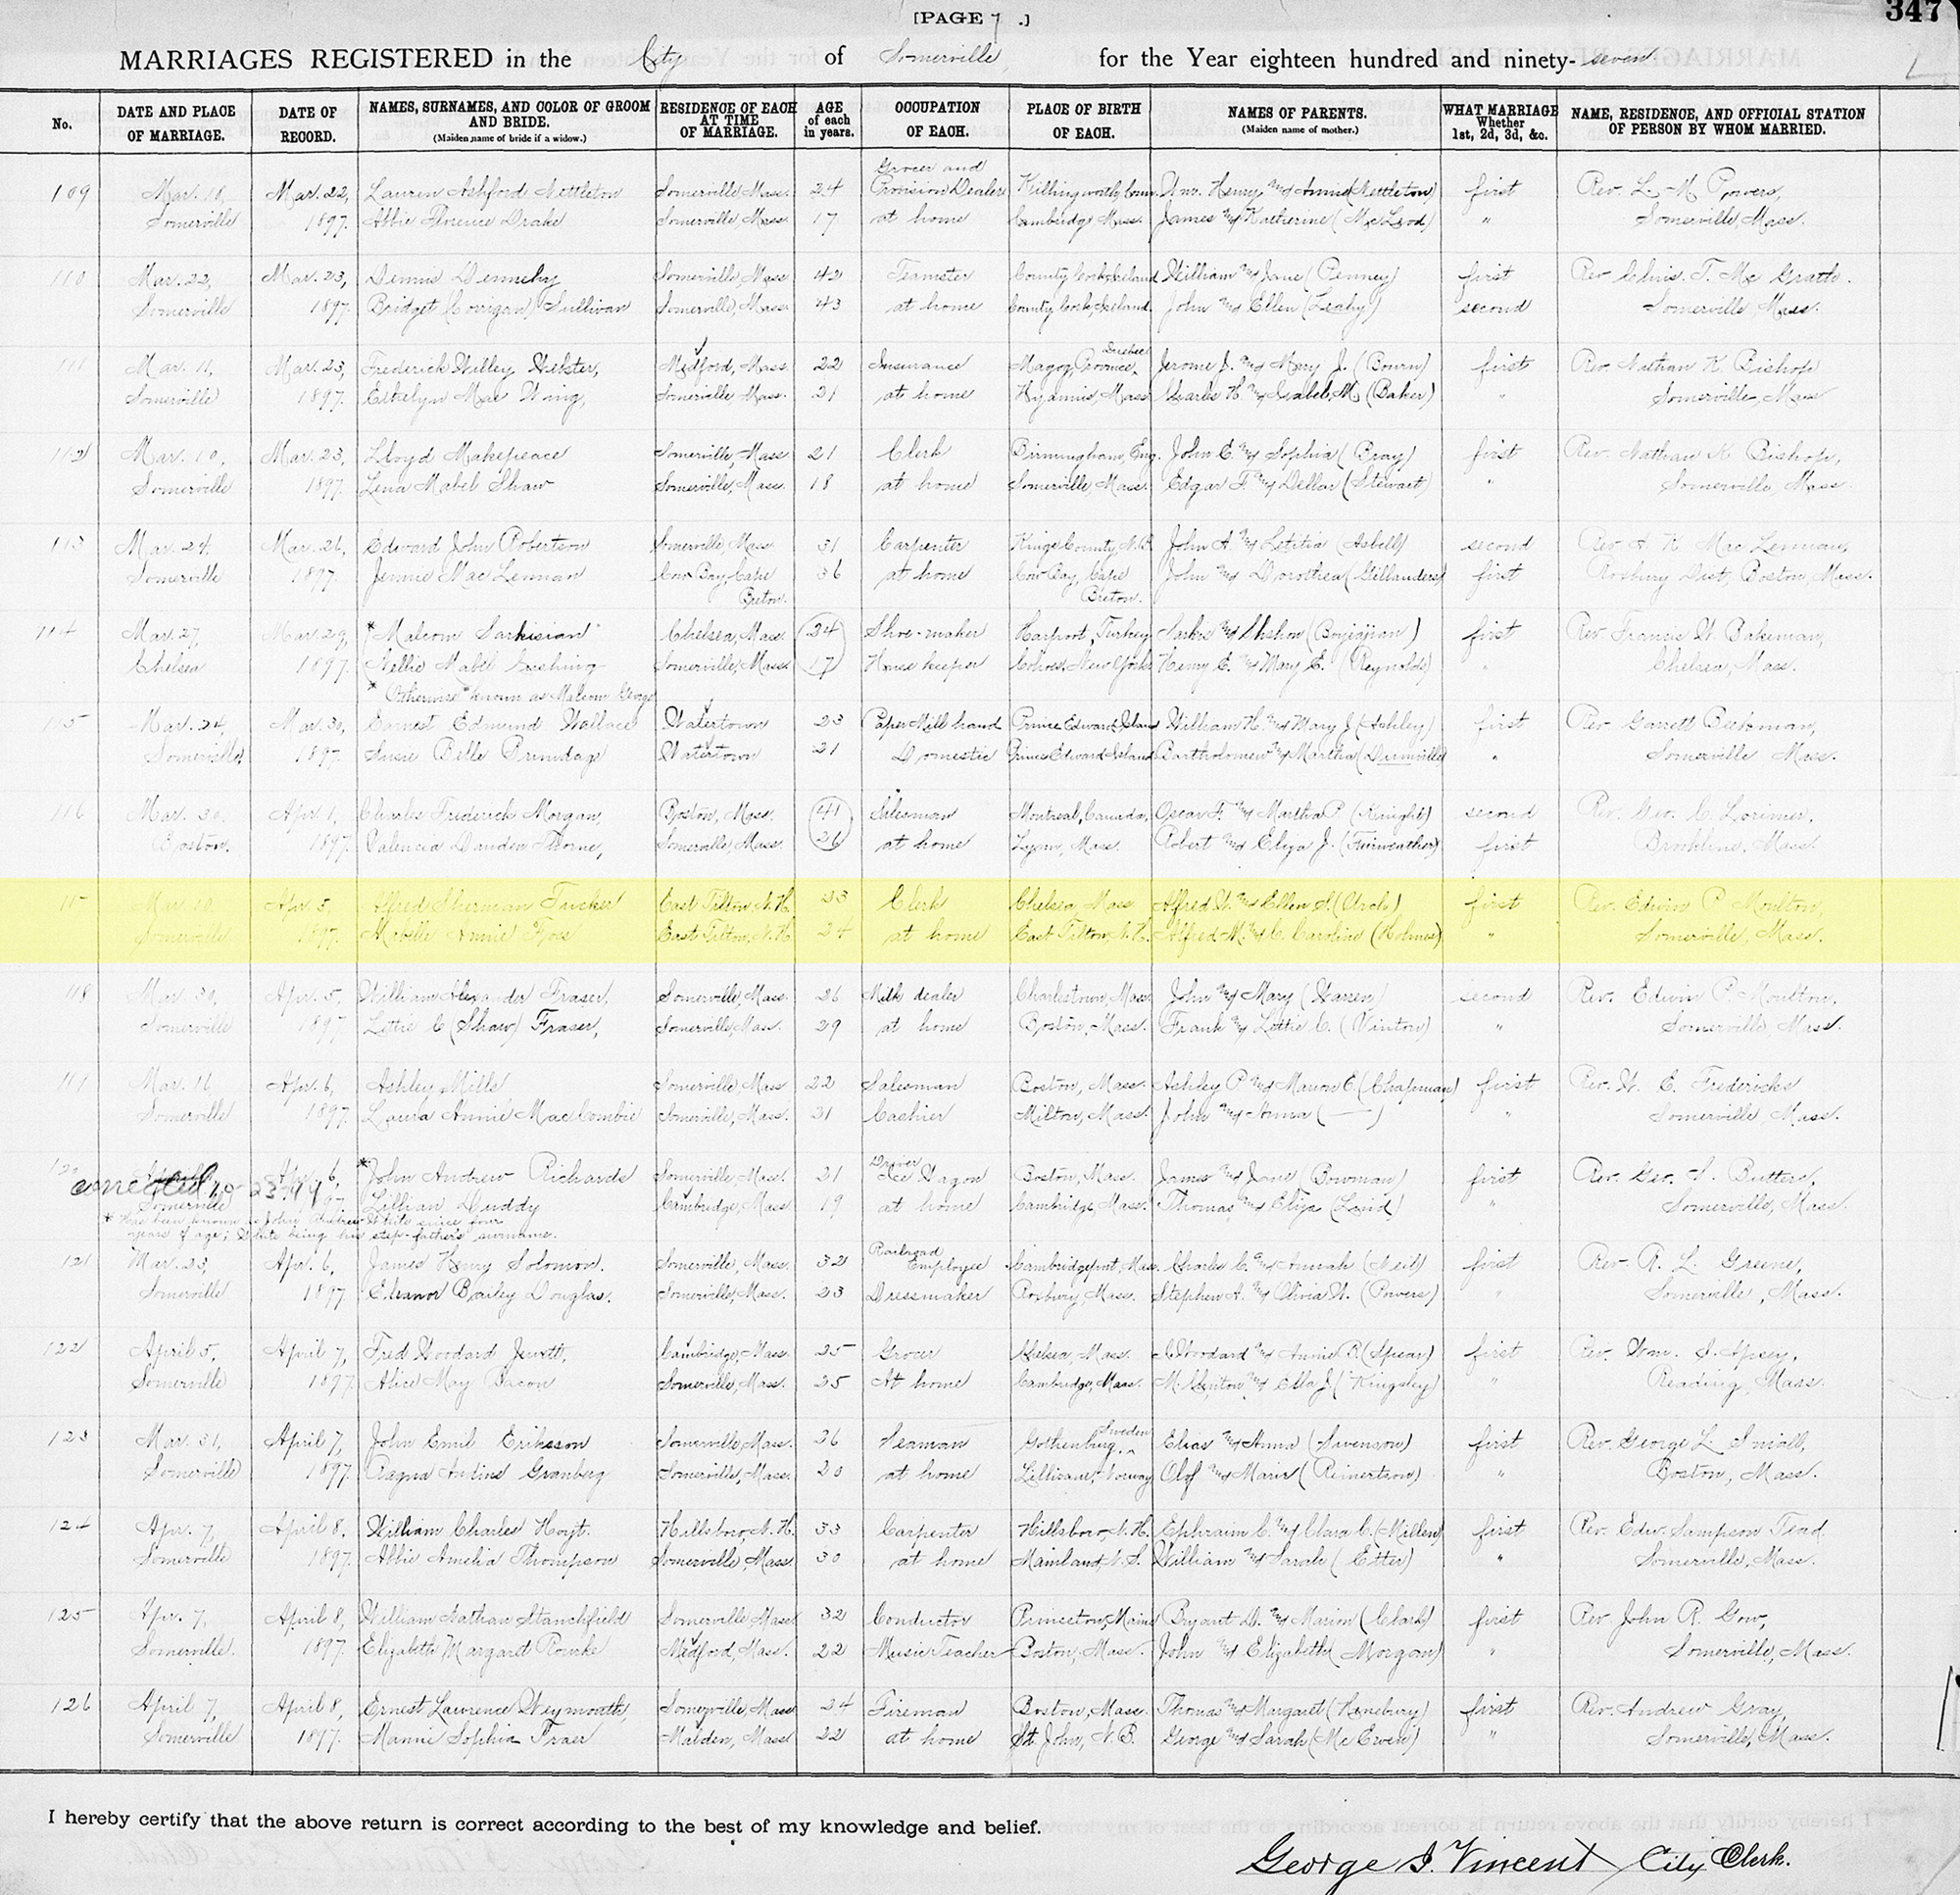 [PAGE 7 .]
347
MARRIAGES REGISTERED in the City of Somerville for the Year eighteen hundred and ninety-seven
No. DATE AND PLACE OF MARRIAGE. DATE OF RECORD. NAMES, SURNAMES, AND COLOR OF GROOM AND BRIDE. (Maiden name of bride if a widow.) RESIDENCE OF EACH AT TIME OF MARRIAGE. AGE of each in years. OCCUPATION OF EACH. PLACE OF BIRTH OF EACH. NAMES OF PARENTS. (Maiden name of mother.) WHAT MARRIAGE Whether 1st, 2d, 3d, &c. NAME, RESIDENCE, AND OFFICIAL STATION OF PERSON BY WHOM MARRIED.
Grocer and
109 Mar. 18, Mar. 22, Lauren Ashford Nettleton Somerville, Mass. 24 Provision Dealer Killingworth, Conn. Wm. Henry and Annie (Nettleton) first Rev. L. M. Powers,
Somerville 1897. Abbie Florence Drake Somerville, Mass. 17 at home Cambridge, Mass. James and Katherine (McLeod) " Somerville, Mass.
110 Mar. 22, Mar. 23, Dennis Dennehy Somerville, Mass. 42 Teamster County Cork, Ireland William and Jane (Penney) first Rev. Chris. T. McGrath.
Somerville 1897. Bridget (Corrigan) Sullivan Somerville, Mass. 43 at home County Cork, Ireland. John and Ellen (Leahy) second Somerville Mass.
111 Mar. 11, Mar. 23, Frederick Willey Webster, Medford, Mass. 22 Insurance Magog, Province, Quebec Jerome J. and Mary J. (Bourn) first Rev. Nathan K. Bishop
Somerville 1897. Ethelyn Mae Wing, Somerville Mass. 21 at home Hyannis, Mass. Charles H. and Isabel M. (Baker) " Somerville, Mass
112 Mar. 10, Mar. 23, Lloyd Makepeace Somerville, Mass. 21 Clerk Birmingham, Eng. John E. and Sophia (Bray) first Rev. Nathan K. Bishop,
Somerville 1897. Lena Mabel Shaw Somerville, Mass. 18 at home Somerville Mass. Edgar F. and Della (Stewart) " Somerville, Mass.
113 Mar. 24, Mar. 26, Edward John Robertson Somerville, Mass. 31 Carpenter Kings County, N.B. John A. and Letitia (Asbell) second Rev. A. K. MacLennan,
Somerville 1897. Jennie MacLennan Cow Bay, Cape Breton. 36 at home Cow Bay, Cape Breton. John and Dorothea (Gillanders) first Roxbury Dist. Boston, Mass.
114 Mar. 27, Mar. 29, * Malcom Sarkisian Chelsea, Mass. 24 Shoe-maker Harpoot, Turkey Sarkis and (Boyajian) first Rev. Francis W. Bakeman,
Chelsea 1897. Nellie Mabel Cushing Somerville, Mass. 17 House keeper Cohoes, New York Henry E. and Mary E. (Reynolds) " Chelsea, Mass.
* Otherwise known as Malcom George
115 Mar. 24, Mar. 30, Earnest Edmund Wallace Watertown 23 Paper Mill hand Prince Edward Island William H. and Mary J. (Ashley) first Rev. Garrett Beekman,
Somerville 1897. Susie Belle Brundage Watertown 21 Domestic Prince Edward Island Bartholomew and Martha " Somerville Mass.
116 Mar. 30, Apr. 1, Charles Frederick Morgan, Boston, Mass. 41 Salesman Montreal, Canada, Oscar F. and Martha P. (Knight) second Rev. Geo. C. Lorimer,
Boston. 1897. Valencia Dauden Thorne, Somerville Mass. 26 at home Lynn, Mass. Robert and Eliza J. (Fairweather) first Brookline, Mass.
117 Mar. 10, Apr. 5, Alfred Sherman Tucker East Tilton, N.H. 23 Clerk Chelsea, Mass. Alfred W. and Ellen S. (Arch) first Rev. Edwin P. Moulton,
Somerville 1897. Mabelle Annie Foss East Tilton, N.H. 24 at home East Tilton, N.H. Alfred M. and C. Caroline (Holmes) " Somerville, Mass.
118 Mar. 30, Apr. 5, William Alexander Fraser, Somerville, Mass. 26 Milk dealer Charlestown, Mass. John and Mary (Warren) second Rev. Edwin P. Moulton,
Somerville 1897. Lettie C (Shaw) Fraser, Somerville, Mass. 29 at home Boston, Mass. Frank and Lettie C. (Vinton) " Somerville, Mass.
119 Mar. 16 Apr. 6, Ashley Mills Somerville, Mass 22 Salesman Boston, Mass. Ashley P. and Marion E. (Chapman) first Rev. W. E. Fredericks
Somerville 1897. Laura Annie MacCombie Somerville, Mass. 21 Cashier Milton, Mass. John and Anna ( — ) " Somerville, Mass.
120 Apr. 6, * John Andrew Richards Somerville, Mass. 21 Driver Ice Wagon Boston, Mass. James and Jane (Bowman) first Rev. Geo. S. Butters,
corrected
Somerville 1897. Lillian Duddy Cambridge, Mass. 19 at home Cambridge, Mass. Thomas and Eliza (Laird) " Somerville, Mass.
* Has been known as John Andrew White since four
years of age; White being his step-father's surname.
121 Mar. 23, Apr. 6, James Henry Solomon. Somerville, Mass. 32 Railroad Employee Cambridgeport, Mass. Charles C. and Annah (Neil) first Rev. R. L. Greene,
Somerville 1897. Eleanor Bailey Douglas. Somerville, Mass. 23 Dressmaker Roxbury, Mass. Stephen A. and Olivia W. (Powers) " Somerville, Mass.
122 April 5, April 7, Fred Woodard Jewett, Cambridge, Mass. 25 Grocer Chelsea, Mass. S. Woodard and Annie B. (Spear) first Rev. Wm. S. Apsey,
Somerville 1897. Alice May Bacon Somerville, Mass. 25 At home Cambridge, Mass. M. Clinton and Ella J. (Kingsley) " Reading, Mass.
123 Mar. 31, April 7, John Emil Eriksson Somerville, Mass. 26 Seaman Gothenburg, Sweden Elias and Anna (Swenson) first Rev. George L. Small,
Somerville 1897. Ragna Andine Granberg Somerville, Mass. 20 at home Norway Olof and Marie (Reinertson) " Boston, Mass.
124 Apr. 7, April 8, William Charles Hoyt. Hillsboro, N.H. 33 Carpenter Hillsboro, N.H. Ephraim C. and Clara C. (Millen) first Rev. Edw. Sampson Tead
Somerville 1897. Abbie Amelia Thompson Somerville, Mass. 30 at home Mainland, N.S. William and Sarah (Etter) " Somerville, Mass.
125 Apr. 7, April 8, William Nathan Stanchfield Somerville Mass. 32 Conductor Princeton, Maine Bryant D. and Marion (Clark) first Rev. John R. Gow,
Somerville. 1897. Elizabeth Margaret Rourke Medford, Mass. 22 Music Teacher Boston, Mass. John and Elizabeth (Morgan) " Somerville, Mass.
126 April 7, April 8, Ernest Lawrence Weymouth, Somerville Mass 24 Fireman Boston, Mass. Thomas and Margaret (Hanebury) first Rev. Andrew Gray,
Somerville 1897. Mamie Sophia Fraer Malden, Mass. 22 at home St. John, N.B. George and Sarah (McEwen) " Somerville, Mass.
I hereby certify that the above return is correct according to the best of my knowledge and belief.
George I. Vincent City Clerk.